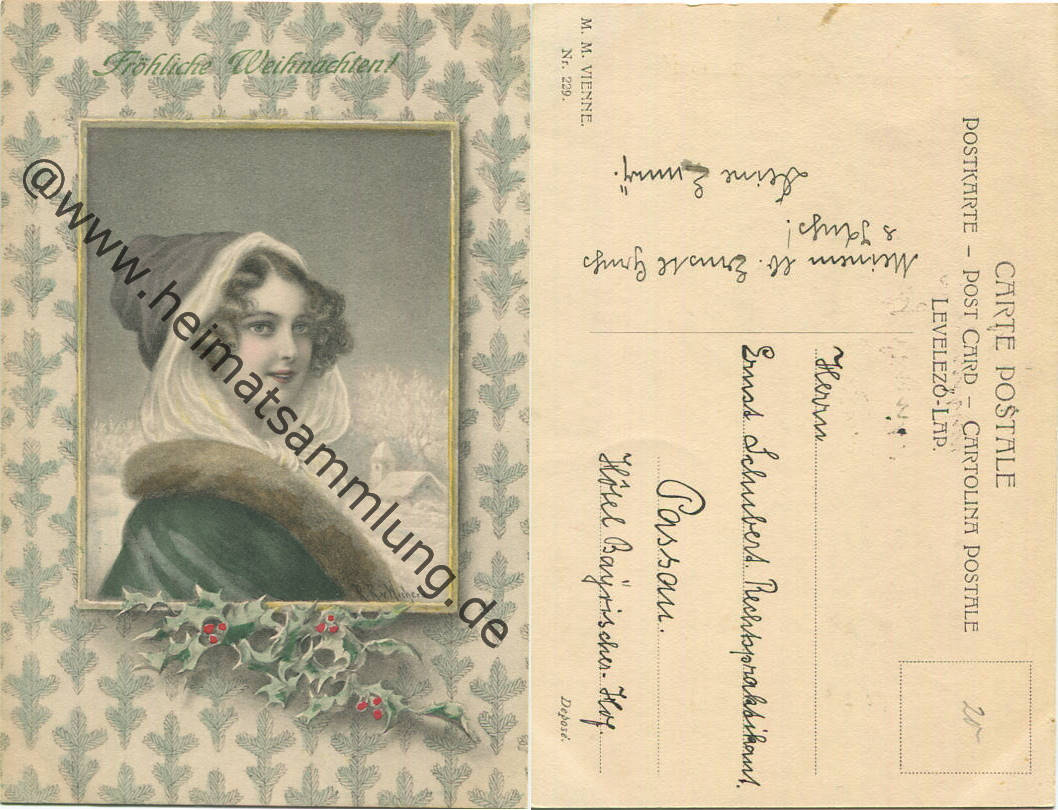 Fröhliche Weihnachten!
@www.heimatsammlung.de
R. R. Wichera
CARTE POSTALE
POSTKARTE – POST CARD – CARTOLINA POSTALE
LEVELEZŐ-LAP.
M. M. VIENNE.
Nr. 229.
Meinem lb. Ernstl Gruß
& Kuß!
Deine Emmy.
Herrn
Ernst Schubert Rechtspraktikant.
Passau.
Hôtel Bayrischer-Hof.
Deposé.
20